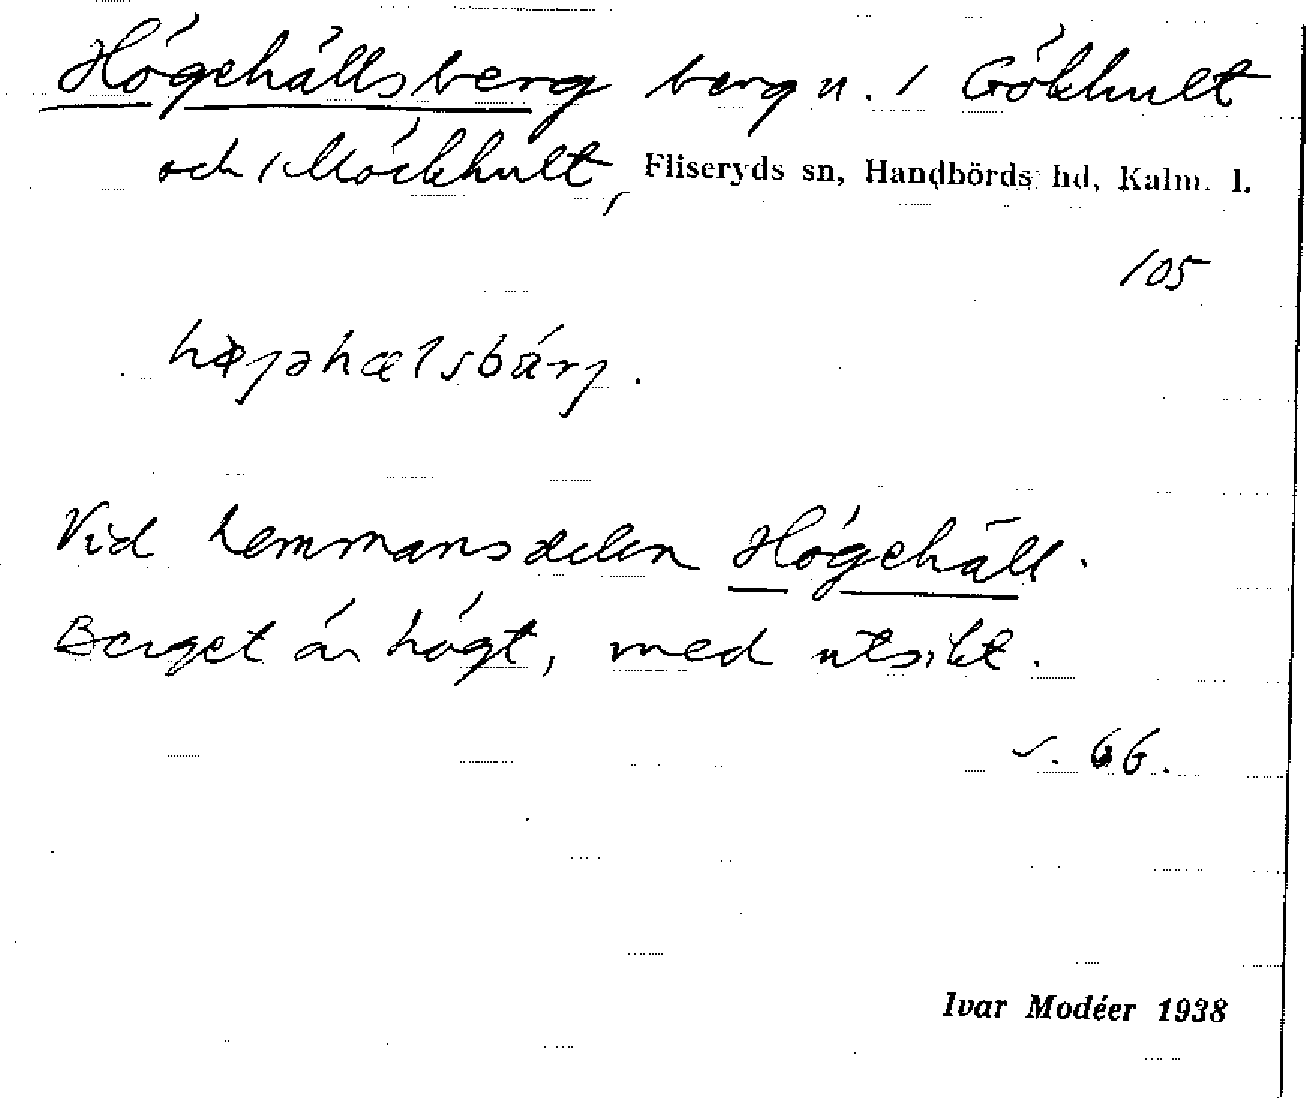 Högehällsberg berg n. 1 Gökhult
och 1 Möckhult, Fliseryds sn, Handbörds hd, Kalm. l.
105
Vid hemmansdelen Högehäll.
Berget är högt, med utsikt.
s. 66.
Ivar Modéer 1938